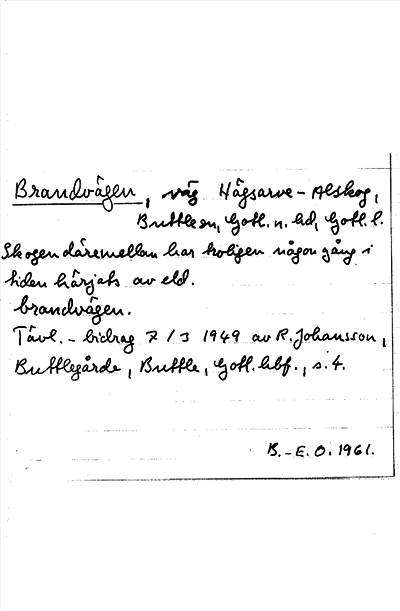 Brandvägen, väg Hägsarve - Alskog,
Buttle sn, Gotl. n. hd, Gotl. l.
Skogen däremellan har troligen någon gång i
tiden härjats av eld.
brandvägen.
Tävl. - bidrag 7/3 1949 av R. Johansson,
Buttlegårde, Buttle, Gotl. hbf., s. 4.
B.-E. O. 1961.